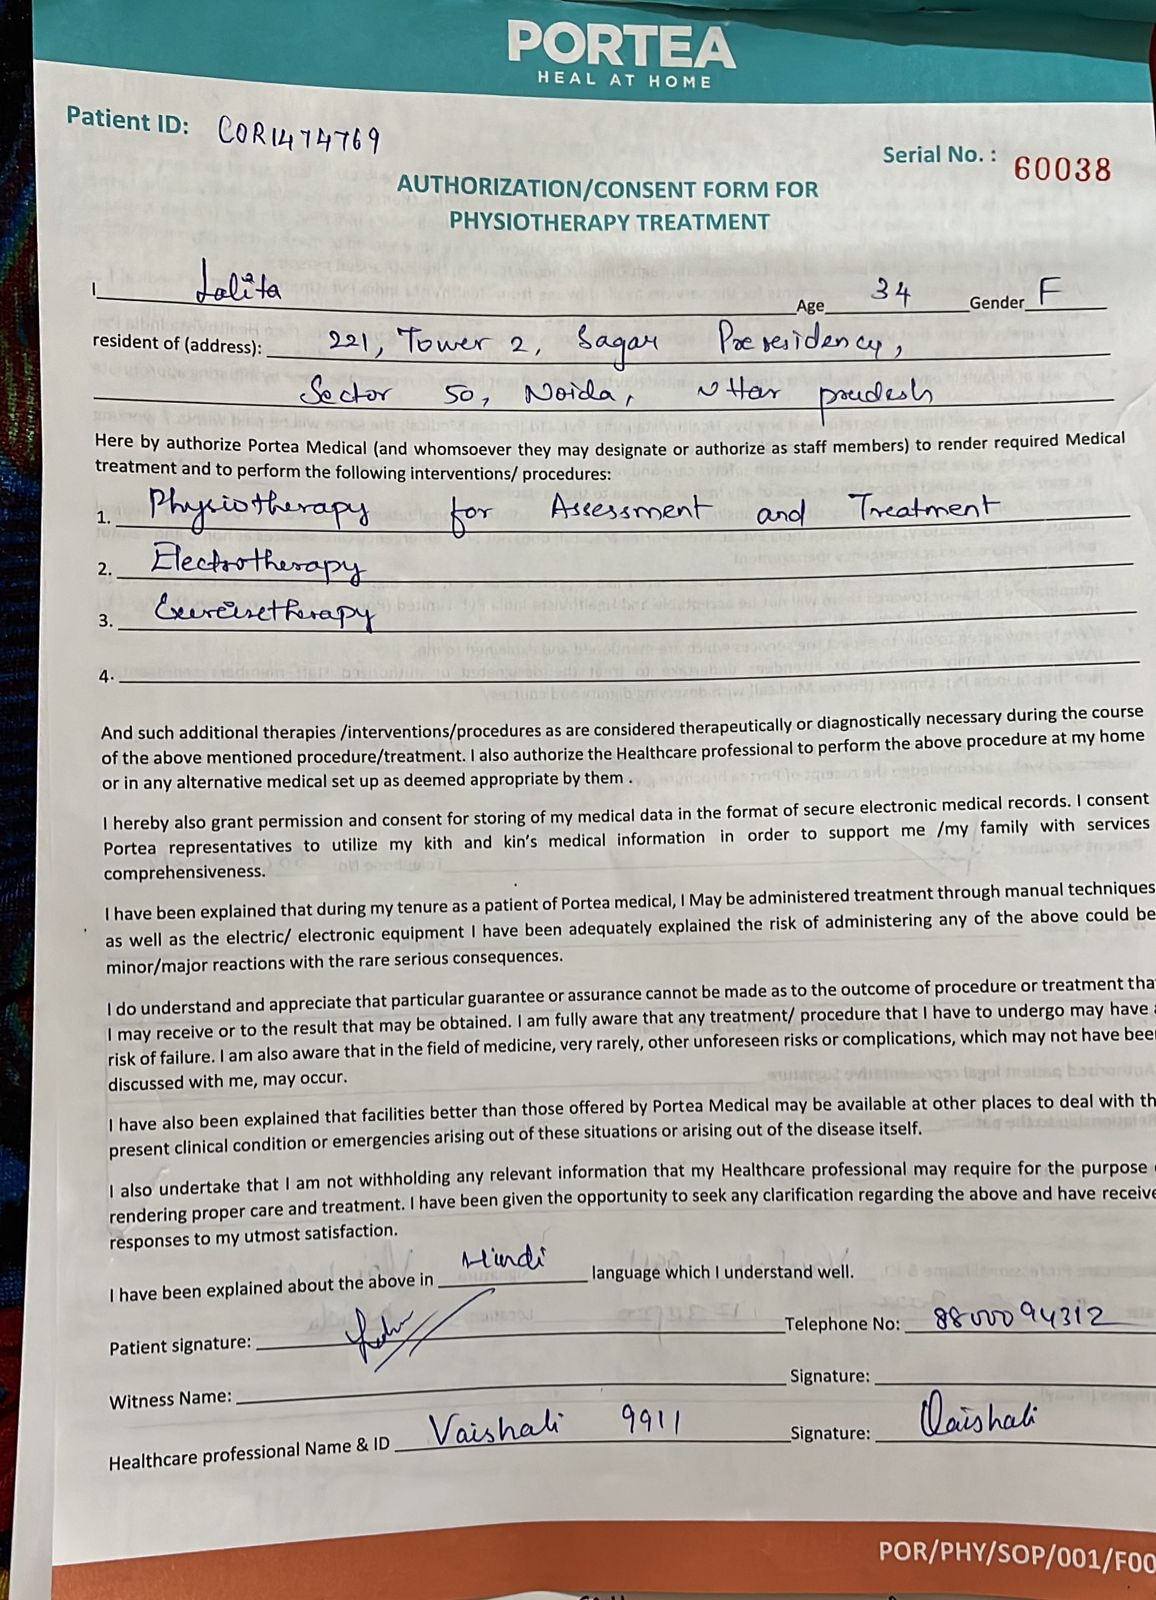 PORTEA
HEAL AT HOME
Patient ID: COR1474769
Serial No. : 60038
AUTHORIZATION/CONSENT FORM FOR
PHYSIOTHERAPY TREATMENT
I Lalita Age 34 Gender F
resident of (address): 221, Tower 2, Sagar Preresidency,
Sector 50, Noida, Uttar pradesh
Here by authorize Portea Medical (and whomsoever they may designate or authorize as staff members) to render required Medical
treatment and to perform the following interventions/ procedures:
1. Physiotherapy for Assessment and Treatment
2. Electrotherapy
3. Exercisetherapy
4.
And such additional therapies /interventions/procedures as are considered therapeutically or diagnostically necessary during the course
of the above mentioned procedure/treatment. I also authorize the Healthcare professional to perform the above procedure at my home
or in any alternative medical set up as deemed appropriate by them .
I hereby also grant permission and consent for storing of my medical data in the format of secure electronic medical records. I consent
Portea representatives to utilize my kith and kin's medical information in order to support me /my family with services
comprehensiveness.
I have been explained that during my tenure as a patient of Portea medical, I May be administered treatment through manual techniques
as well as the electric/ electronic equipment I have been adequately explained the risk of administering any of the above could be
minor/major reactions with the rare serious consequences.
I do understand and appreciate that particular guarantee or assurance cannot be made as to the outcome of procedure or treatment tha
I may receive or to the result that may be obtained. I am fully aware that any treatment/ procedure that I have to undergo may have
risk of failure. I am also aware that in the field of medicine, very rarely, other unforeseen risks or complications, which may not have bee
discussed with me, may occur.
I have also been explained that facilities better than those offered by Portea Medical may be available at other places to deal with th
present clinical condition or emergencies arising out of these situations or arising out of the disease itself.
I also undertake that I am not withholding any relevant information that my Healthcare professional may require for the purpose
rendering proper care and treatment. I have been given the opportunity to seek any clarification regarding the above and have receive
responses to my utmost satisfaction.
I have been explained about the above in Hindi language which I understand well.
Patient signature: Telephone No: 8800094312
Witness Name: Signature:
Healthcare professional Name & ID Vaishali 9911 Signature: Vaishali
POR/PHY/SOP/001/F00